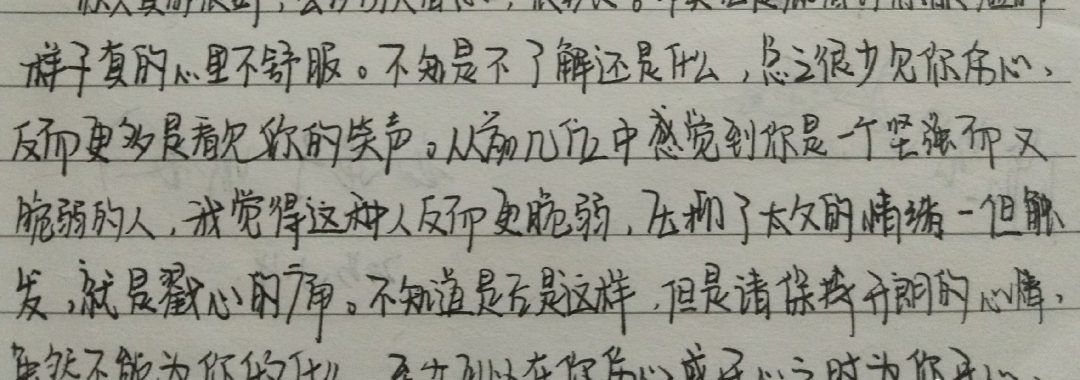 样子真的心里不舒服。不知是不了解还是什么,总之很少见你伤心、
反而更多是看见你的笑声。从前几位中感觉到你是一个坚强而又
脆弱的人,我觉得这种人反而更脆弱,压抑了太久的情绪一但触
发,就是戳心的痛。不知道是否是这样,但是请保持开朗的心情,
虽然不能为你做什么 至少可以在你伤心或开心之时为你开心、